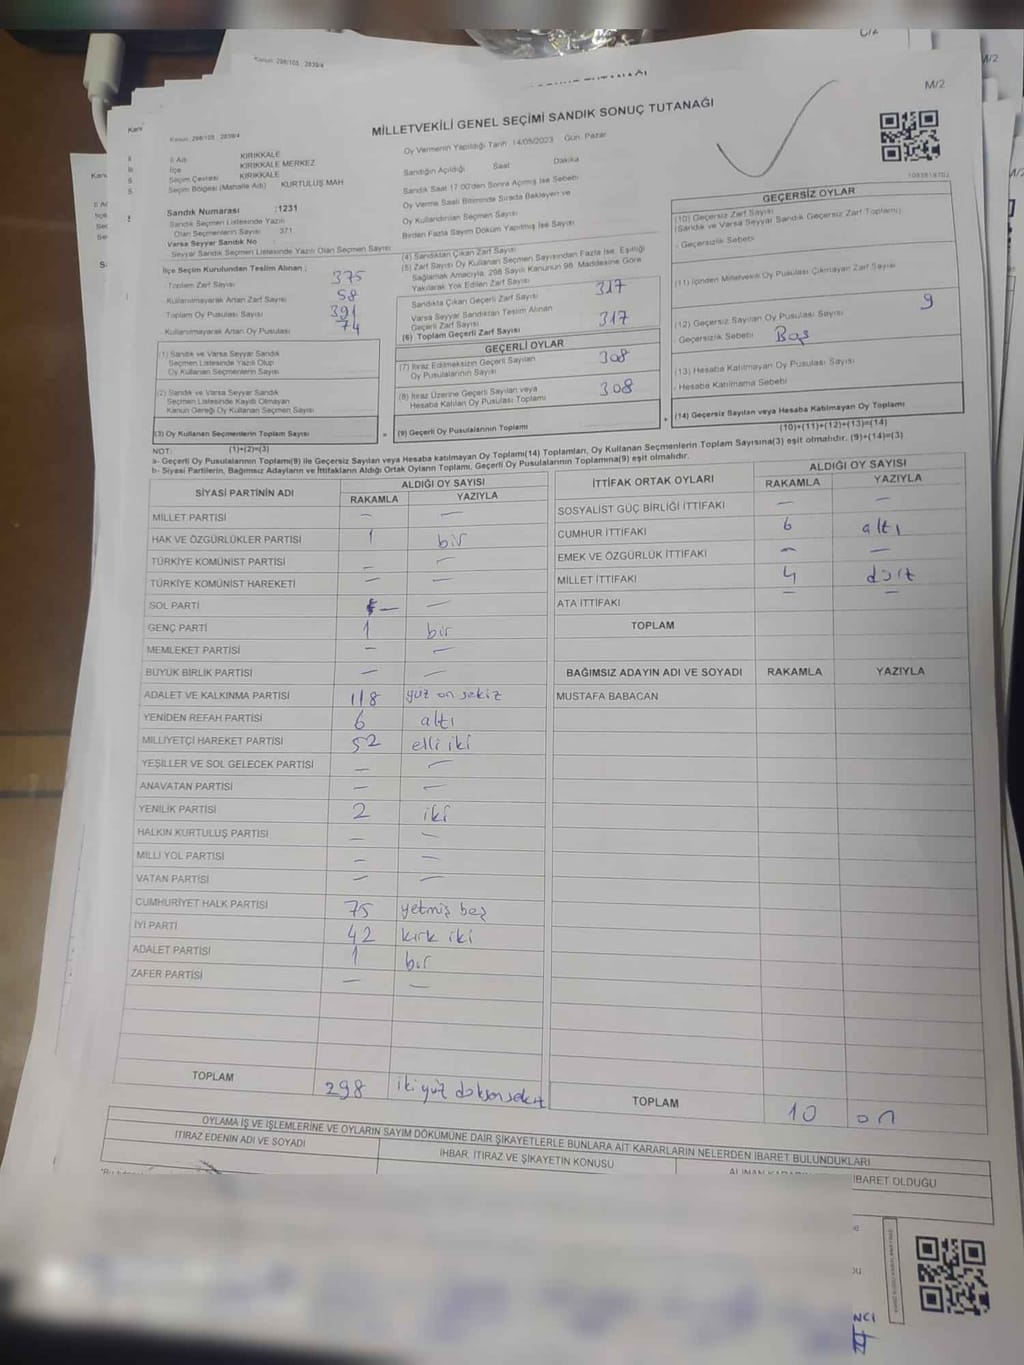 Kanun: 298/105 ; 2839/4
M/2
MİLLETVEKİLİ GENEL SEÇİMİ SANDIK SONUÇ TUTANAĞI
Kanun: 298/105 ; 2839/4
İl Adı KIRIKKALE
İlçe KIRIKKALE MERKEZ
Seçim Çevresi KIRIKKALE
Seçim Bölgesi (Mahalle Adı) KURTULUŞ MAH
Sandık Numarası :1231
Sandık Seçmen Listesinde Yazılı
Olan Seçmenlerin Sayısı 371
Varsa Seyyar Sandık No :
Seyyar Sandık Seçmen Listesinde Yazılı Olan Seçmen Sayısı:
Oy Vermenin Yapıldığı Tarih 14/05/2023 Gün: Pazar
Sandığın Açıldığı Saat Dakika
Sandık Saat 17:00'den Sonra Açılmış İse Sebebi
Oy Verme Saati Bitiminde Sırada Bekleyen ve
Oy Kullandırılan Seçmen Sayısı
Birden Fazla Sayım Döküm Yapılmış İse Sayısı
İlçe Seçim Kurulundan Teslim Alınan ;
Toplam Zarf Sayısı 375
Kullanılmayarak Artan Zarf Sayısı 58
Toplam Oy Pusulası Sayısı 391
Kullanılmayarak Artan Oy Pusulası 74
(1) Sandık ve Varsa Seyyar Sandık
Seçmen Listesinde Yazılı Olup
Oy Kullanan Seçmenlerin Sayısı
(2) Sandık ve Varsa Seyyar Sandık
Seçmen Listesinde Kayıtlı Olmayan
Kanun Gereği Oy Kullanan Seçmen Sayısı
(3) Oy Kullanan Seçmenlerin Toplam Sayısı
(1)+(2)=(3)
(4) Sandıktan Çıkan Zarf Sayısı
(5) Zarf Sayısı Oy Kullanan Seçmen Sayısından Fazla İse, Eşitliği
Sağlamak Amacıyla, 298 Sayılı Kanunun 98. Maddesine Göre
Yakılarak Yok Edilen Zarf Sayısı
Sandıkta Çıkan Geçerli Zarf Sayısı 317
Varsa Seyyar Sandıktan Teslim Alınan
Geçerli Zarf Sayısı
(6) Toplam Geçerli Zarf Sayısı 317
GEÇERLİ OYLAR
(7) İtiraz Edilmeksizin Geçerli Sayılan
Oy Pusulalarının Sayısı 308
(8) İtiraz Üzerine Geçerli Sayılan veya
Hesaba Katılan Oy Pusulası Toplamı 308
(9) Geçerli Oy Pusulalarının Toplamı
GEÇERSİZ OYLAR
(10) Geçersiz Zarf Sayısı
(Sandık ve Varsa Seyyar Sandık Geçersiz Zarf Toplamı)
- Geçersizlik Sebebi
(11) İçinden Milletvekili Oy Pusulası Çıkmayan Zarf Sayısı
(12) Geçersiz Sayılan Oy Pusulası Sayısı 9
- Geçersizlik Sebebi Boş
(13) Hesaba Katılmayan Oy Pusulası Sayısı
- Hesaba Katılmama Sebebi
(14) Geçersiz Sayılan veya Hesaba Katılmayan Oy Toplamı
(10)+(11)+(12)+(13)=(14)
NOT:
a- Geçerli Oy Pusulalarının Toplamı(9) ile Geçersiz Sayılan veya Hesaba katılmayan Oy Toplamı(14) Toplamları, Oy Kullanan Seçmenlerin Toplam Sayısına(3) eşit olmalıdır. (9)+(14)=(3)
b- Siyasi Partilerin, Bağımsız Adayların ve İttifakların Aldığı Ortak Oyların Toplamı, Geçerli Oy Pusulalarının Toplamına(9) eşit olmalıdır.
SİYASİ PARTİNİN ADI ALDIĞI OY SAYISI
RAKAMLA YAZIYLA
MİLLET PARTİSİ — —
HAK VE ÖZGÜRLÜKLER PARTİSİ 1 bir
TÜRKİYE KOMÜNİST PARTİSİ — —
TÜRKİYE KOMÜNİST HAREKETİ — —
SOL PARTİ — —
GENÇ PARTİ 1 bir
MEMLEKET PARTİSİ — —
BÜYÜK BİRLİK PARTİSİ — —
ADALET VE KALKINMA PARTİSİ 118 yüz on sekiz
YENİDEN REFAH PARTİSİ 6 altı
MİLLİYETÇİ HAREKET PARTİSİ 52 elli iki
YEŞİLLER VE SOL GELECEK PARTİSİ — —
ANAVATAN PARTİSİ — —
YENİLİK PARTİSİ 2 iki
HALKIN KURTULUŞ PARTİSİ — —
MİLLİ YOL PARTİSİ — —
VATAN PARTİSİ — —
CUMHURİYET HALK PARTİSİ 75 yetmiş beş
İYİ PARTİ 42 kırk iki
ADALET PARTİSİ 1 bir
ZAFER PARTİSİ — —
TOPLAM 298 iki yüz doksan sekiz
İTTİFAK ORTAK OYLARI ALDIĞI OY SAYISI
RAKAMLA YAZIYLA
SOSYALİST GÜÇ BİRLİĞİ İTTİFAKI — —
CUMHUR İTTİFAKI 6 altı
EMEK VE ÖZGÜRLÜK İTTİFAKI — —
MİLLET İTTİFAKI 4 dört
ATA İTTİFAKI — —
TOPLAM
BAĞIMSIZ ADAYIN ADI VE SOYADI RAKAMLA YAZIYLA
MUSTAFA BABACAN
TOPLAM 10 on
OYLAMA İŞ VE İŞLEMLERİNE VE OYLARIN SAYIM DÖKÜMÜNE DAİR ŞİKAYETLERLE BUNLARA AİT KARARLARIN NELERDEN İBARET BULUNDUKLARI
İTİRAZ EDENİN ADI VE SOYADI
İHBAR, İTİRAZ VE ŞİKAYETİN KONUSU
İBARET OLDUĞU
NCI